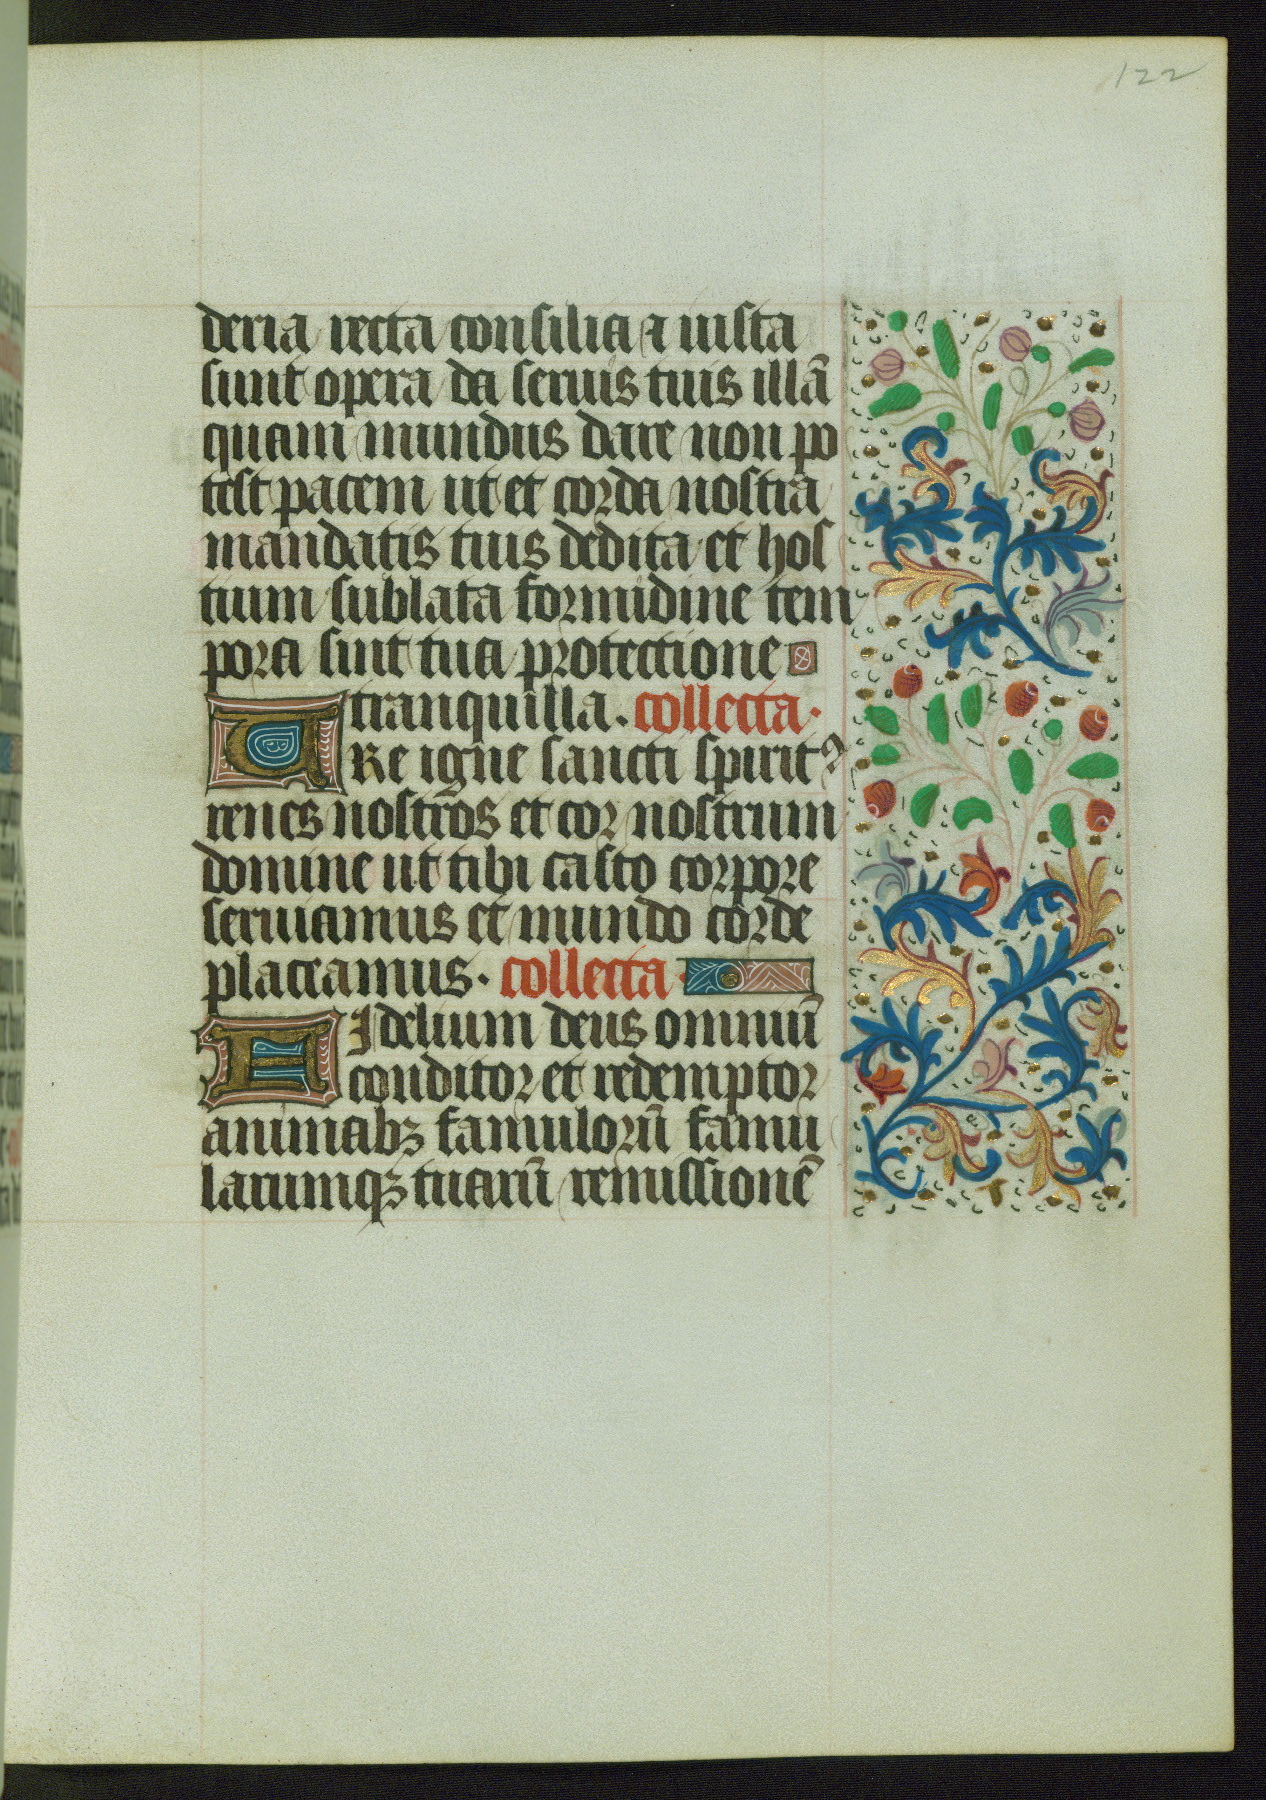 122
deria recta consilia ⁊ iusta
sunt opera da seruis tuis illā
quam mundus dare non po
test pacem ut et corda nostra
mandatis tuis dedita et hos
tium sublata formidine tem
pora sint tua protectione
tranquilla. collecta.
URe igne sancti spiritꝰ
renes nostros et cor nostrum
domine ut tibi casto corpore
seruiamus et mundo corde
placeamus. collecta.
FIdelium deus omniū
conditor et redemptor
animabꝫ famulorū famu
larumqꝫ tuarū remissionē